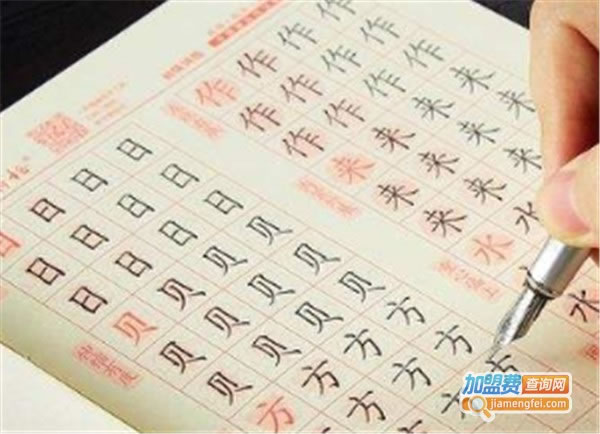 作作作作
作作作作
作作作作
来来来来
来来来来
来来来
水水
水
日日日日
日日日日
日日日日
贝贝贝贝
贝贝贝贝
贝贝贝贝
方方方方
方方方
方
加盟费查询网
jiamengfei.com